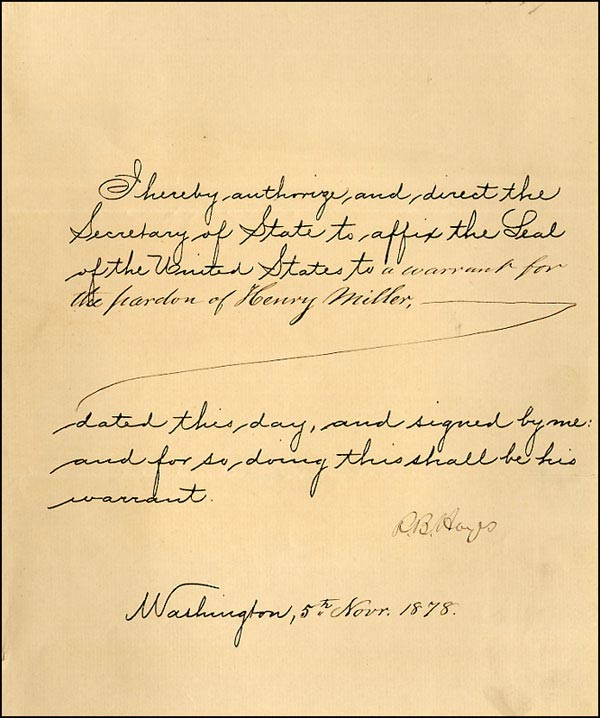 I hereby authorize and direct the
Secretary of State to affix the Seal
of the United States to a warrant for
the pardon of Henry Miller,
dated this day, and signed by me:
and for so doing this shall be his
warrant.
R.B. Hayes
Washington, 5th Novr. 1878.